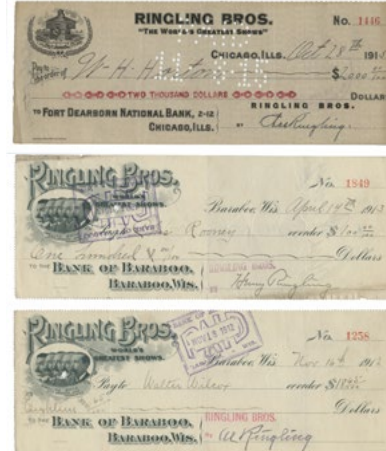 RINGLING BROS.
"THE WORLD'S GREATEST SHOWS"
No. 1446
CHICAGO, ILLS. Oct 28th 191
Pay to the order of W. H. Horton $2000
TWO THOUSAND DOLLARS DOLLARS
TO FORT DEARBORN NATIONAL BANK, 2-12
CHICAGO, ILLS.
RINGLING BROS.
BY Chas Ringling
RINGLING BROS.
WORLD'S
GREATEST SHOWS.
No. 1849
Baraboo, Wis. April 14th 191
Rooney or order $100
One hundred & no/100 Dollars
TO THE BANK OF BARABOO,
BARABOO, WIS.
RINGLING BROS.
BY Henry Ringling
RINGLING BROS.
WORLD'S
GREATEST SHOWS.
PAID
NOV 19 1912
No. 1258
Baraboo, Wis. Nov 16th 1912
Pay to Walter Wilcox or order $18
Eighteen Dollars
TO THE BANK OF BARABOO,
BARABOO, WIS.
RINGLING BROS.
Al Ringling